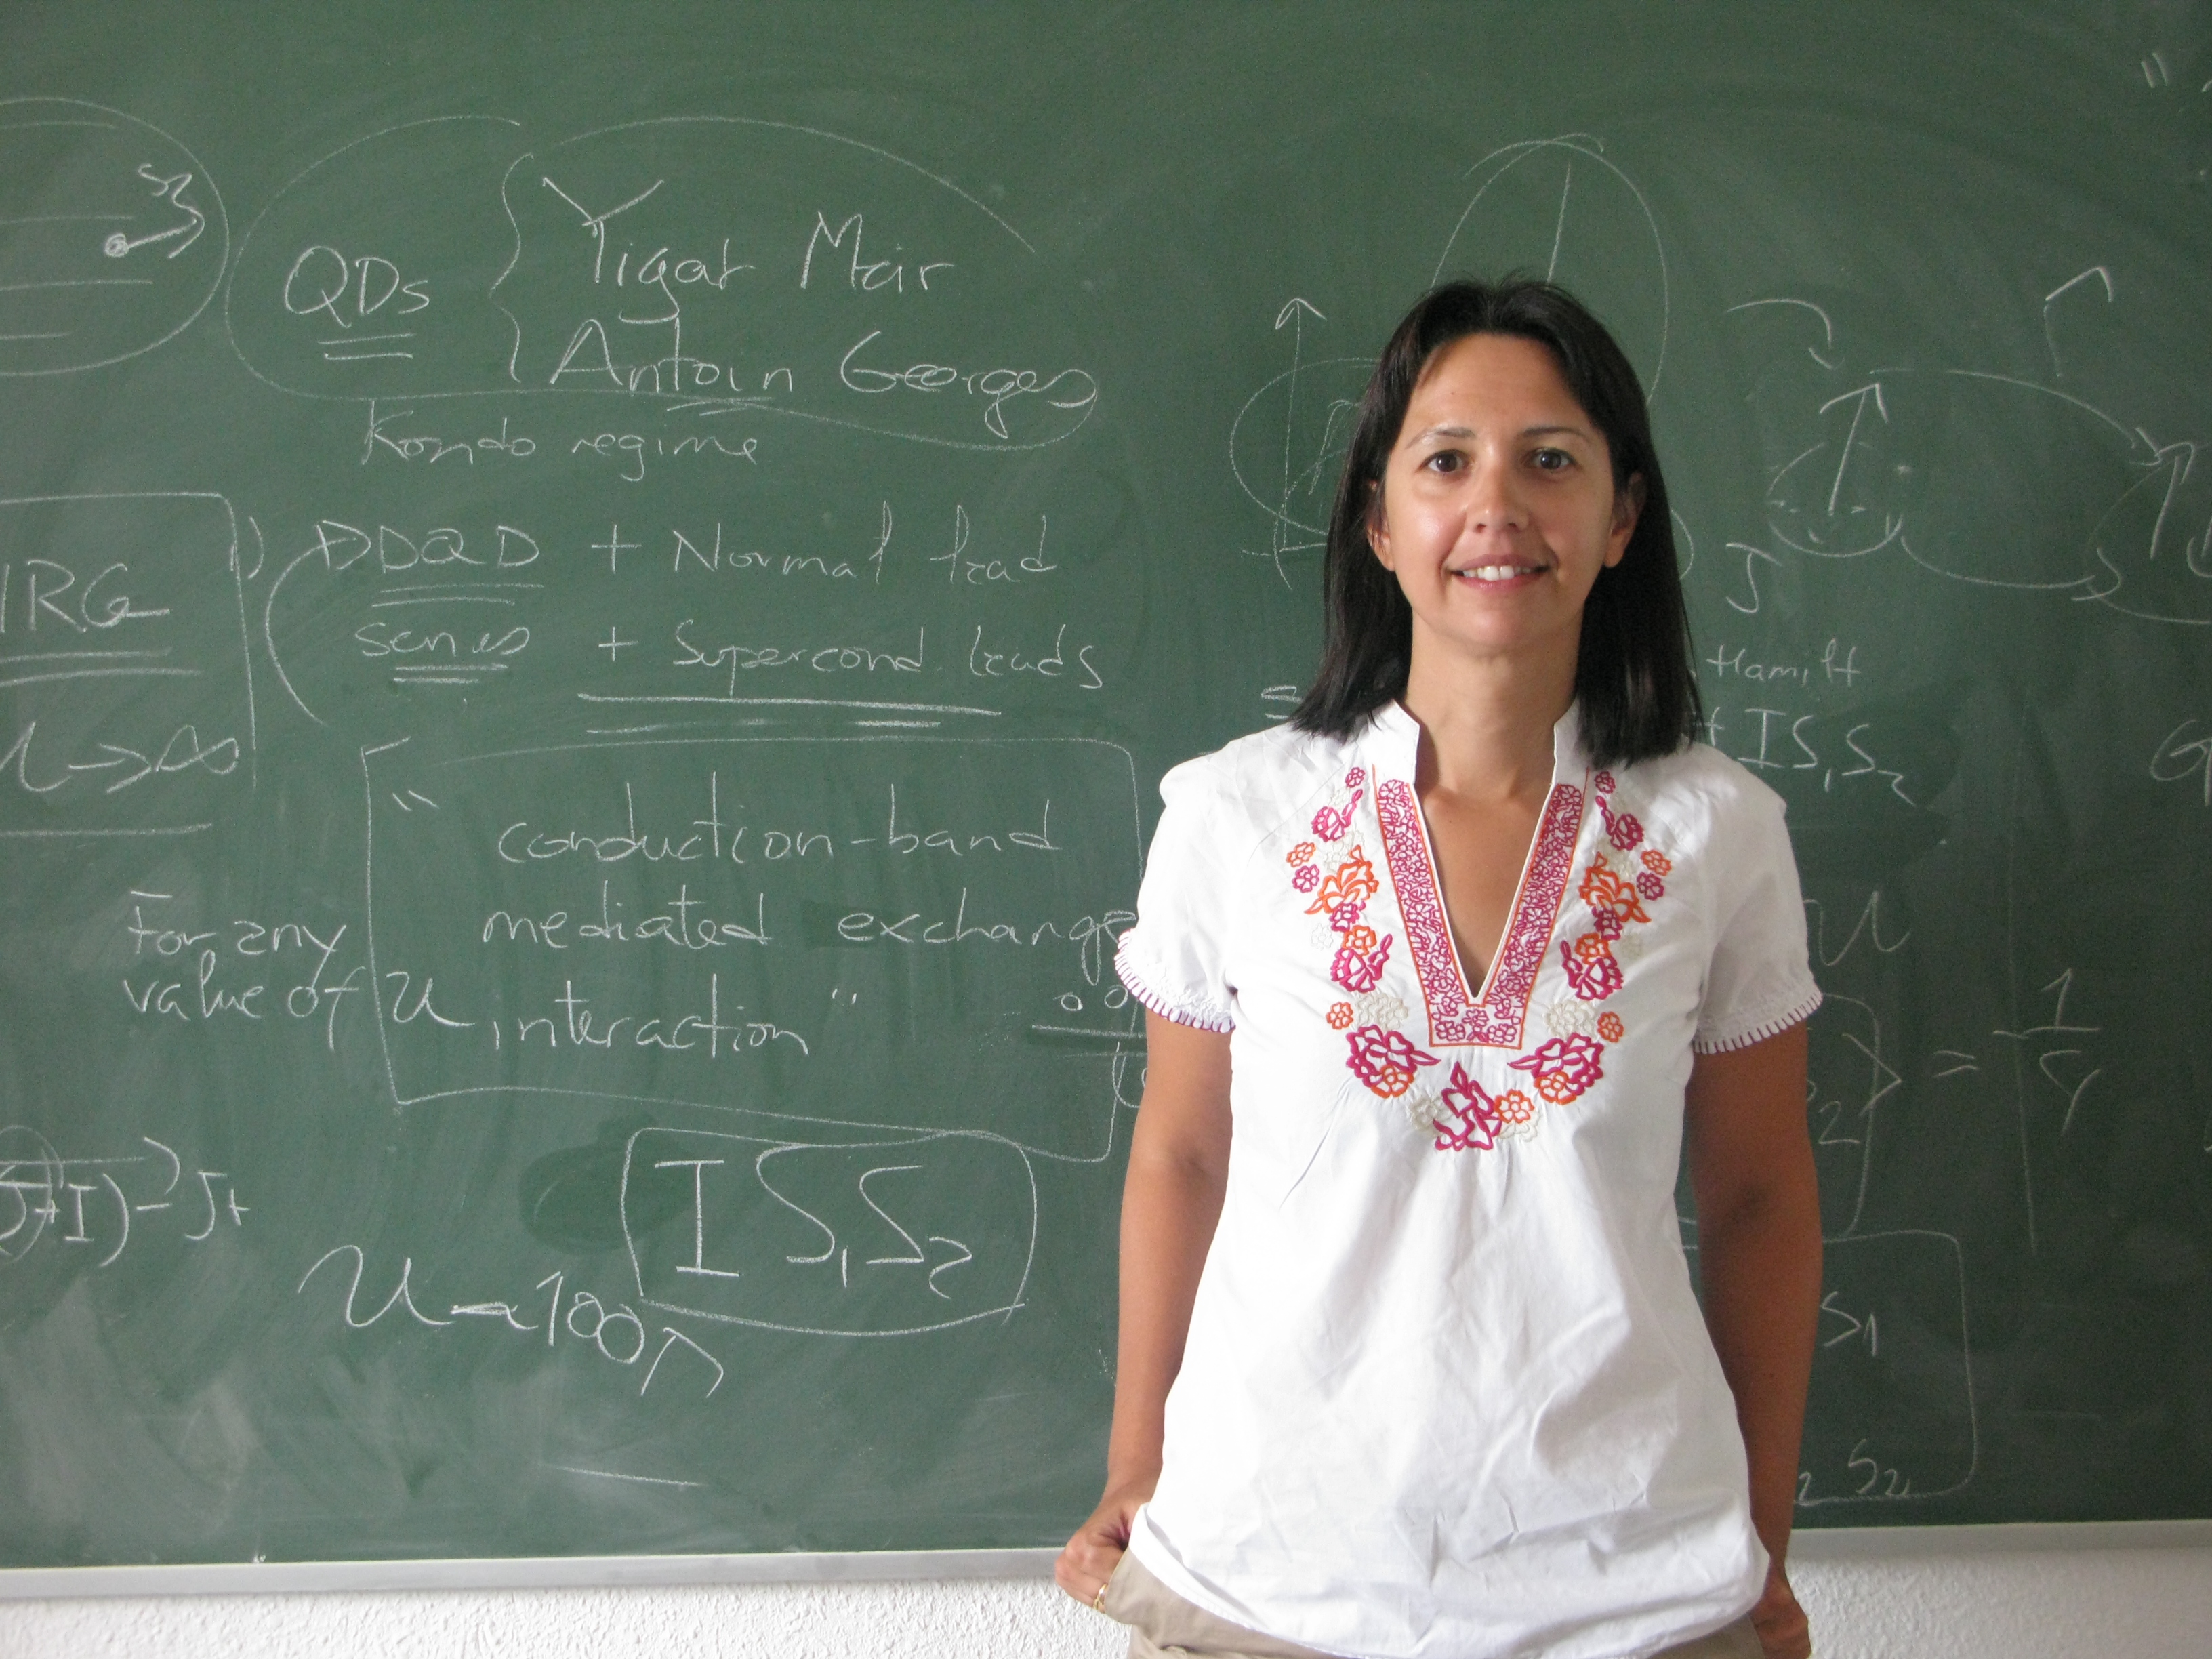 QDs { Yigal Meir
Antoin Georges
Kondo regime
DDQD + Normal lead
series + Supercond. leads
NRG
U → ∞
" conduction-band
mediated exchange
interaction "
For any
value of U
I S₁S₂
J+I) - J+
U = 100
J
Hamilt
+ IS₁S₂
U
S₂> = 1
S₁
S₂